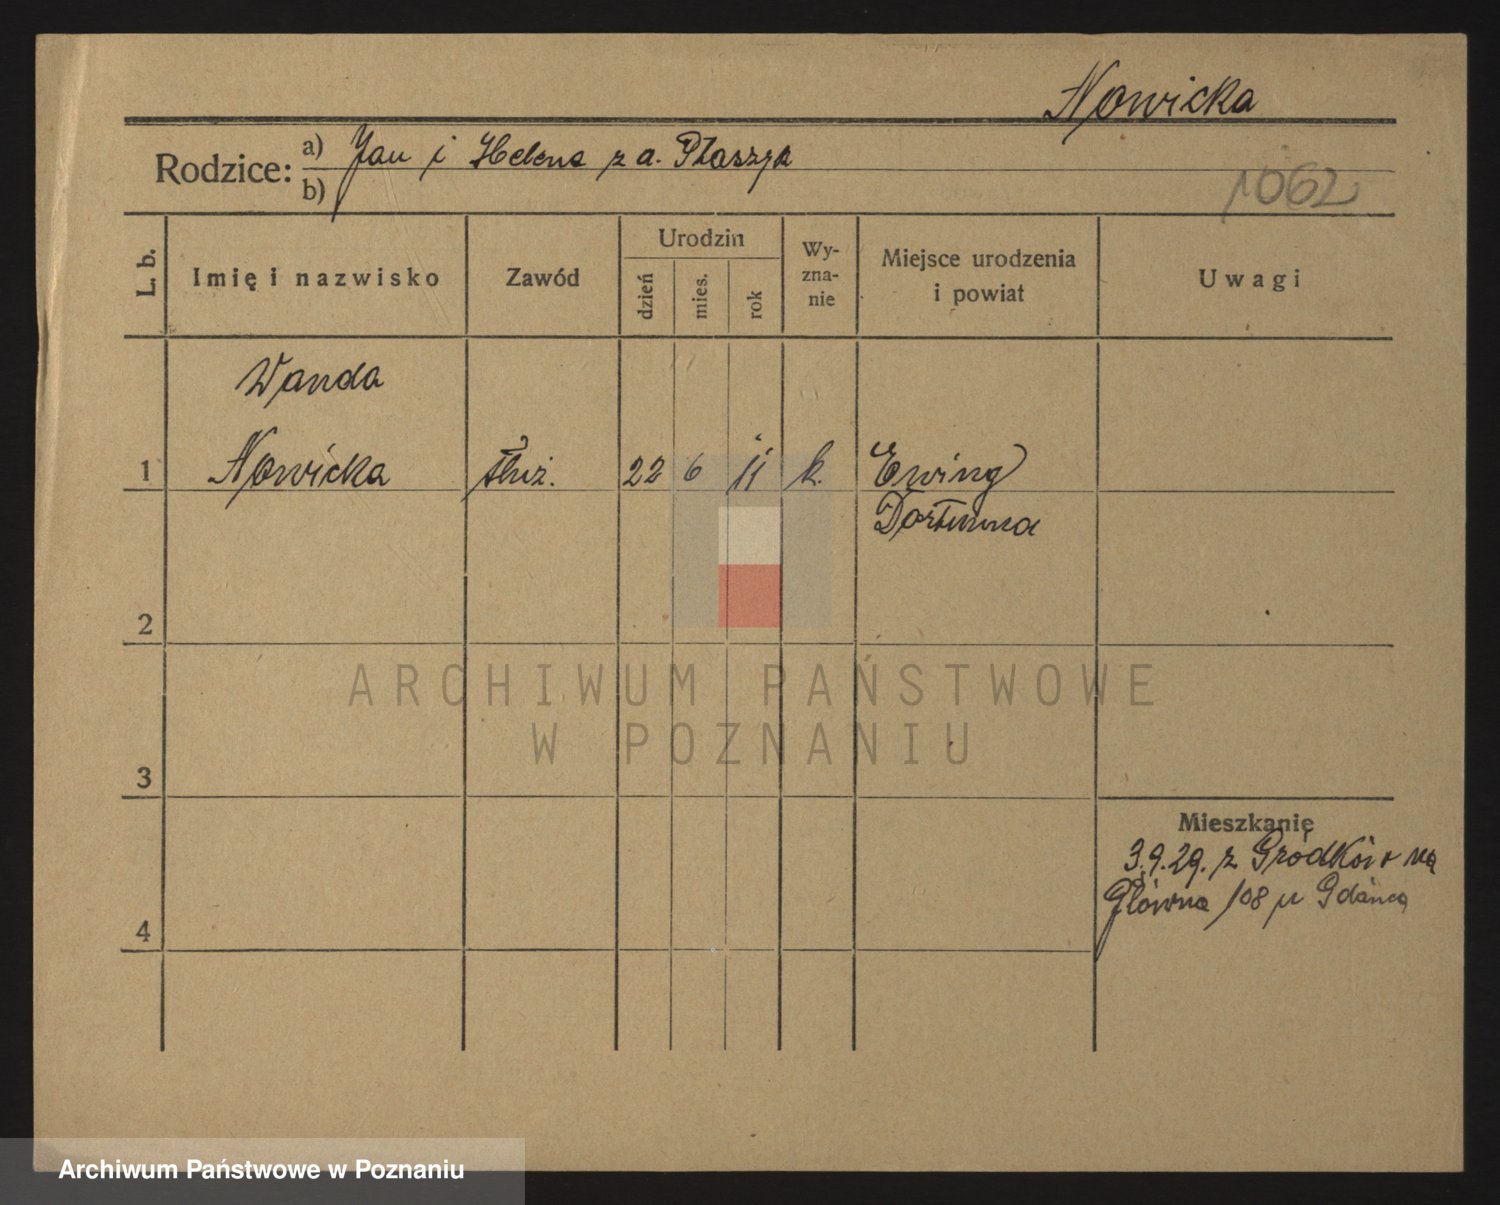 Nowicka
Rodzice: a) Jan i Helena z d. Płaszyk
b)
1062
L. b.
Imię i nazwisko
Zawód
Urodzin
dzień
mies.
rok
Wy-
zna-
nie
Miejsce urodzenia
i powiat
Uwagi
Wanda
1 Nowicka służ. 22 6 11 k. Ewing
Dortmund
2
ARCHIWUM PAŃSTWOWE
W POZNANIU
3
Mieszkanie
3.9.29. z Gródków na
Główna 108 u Gdańca
4
Archiwum Państwowe w Poznaniu